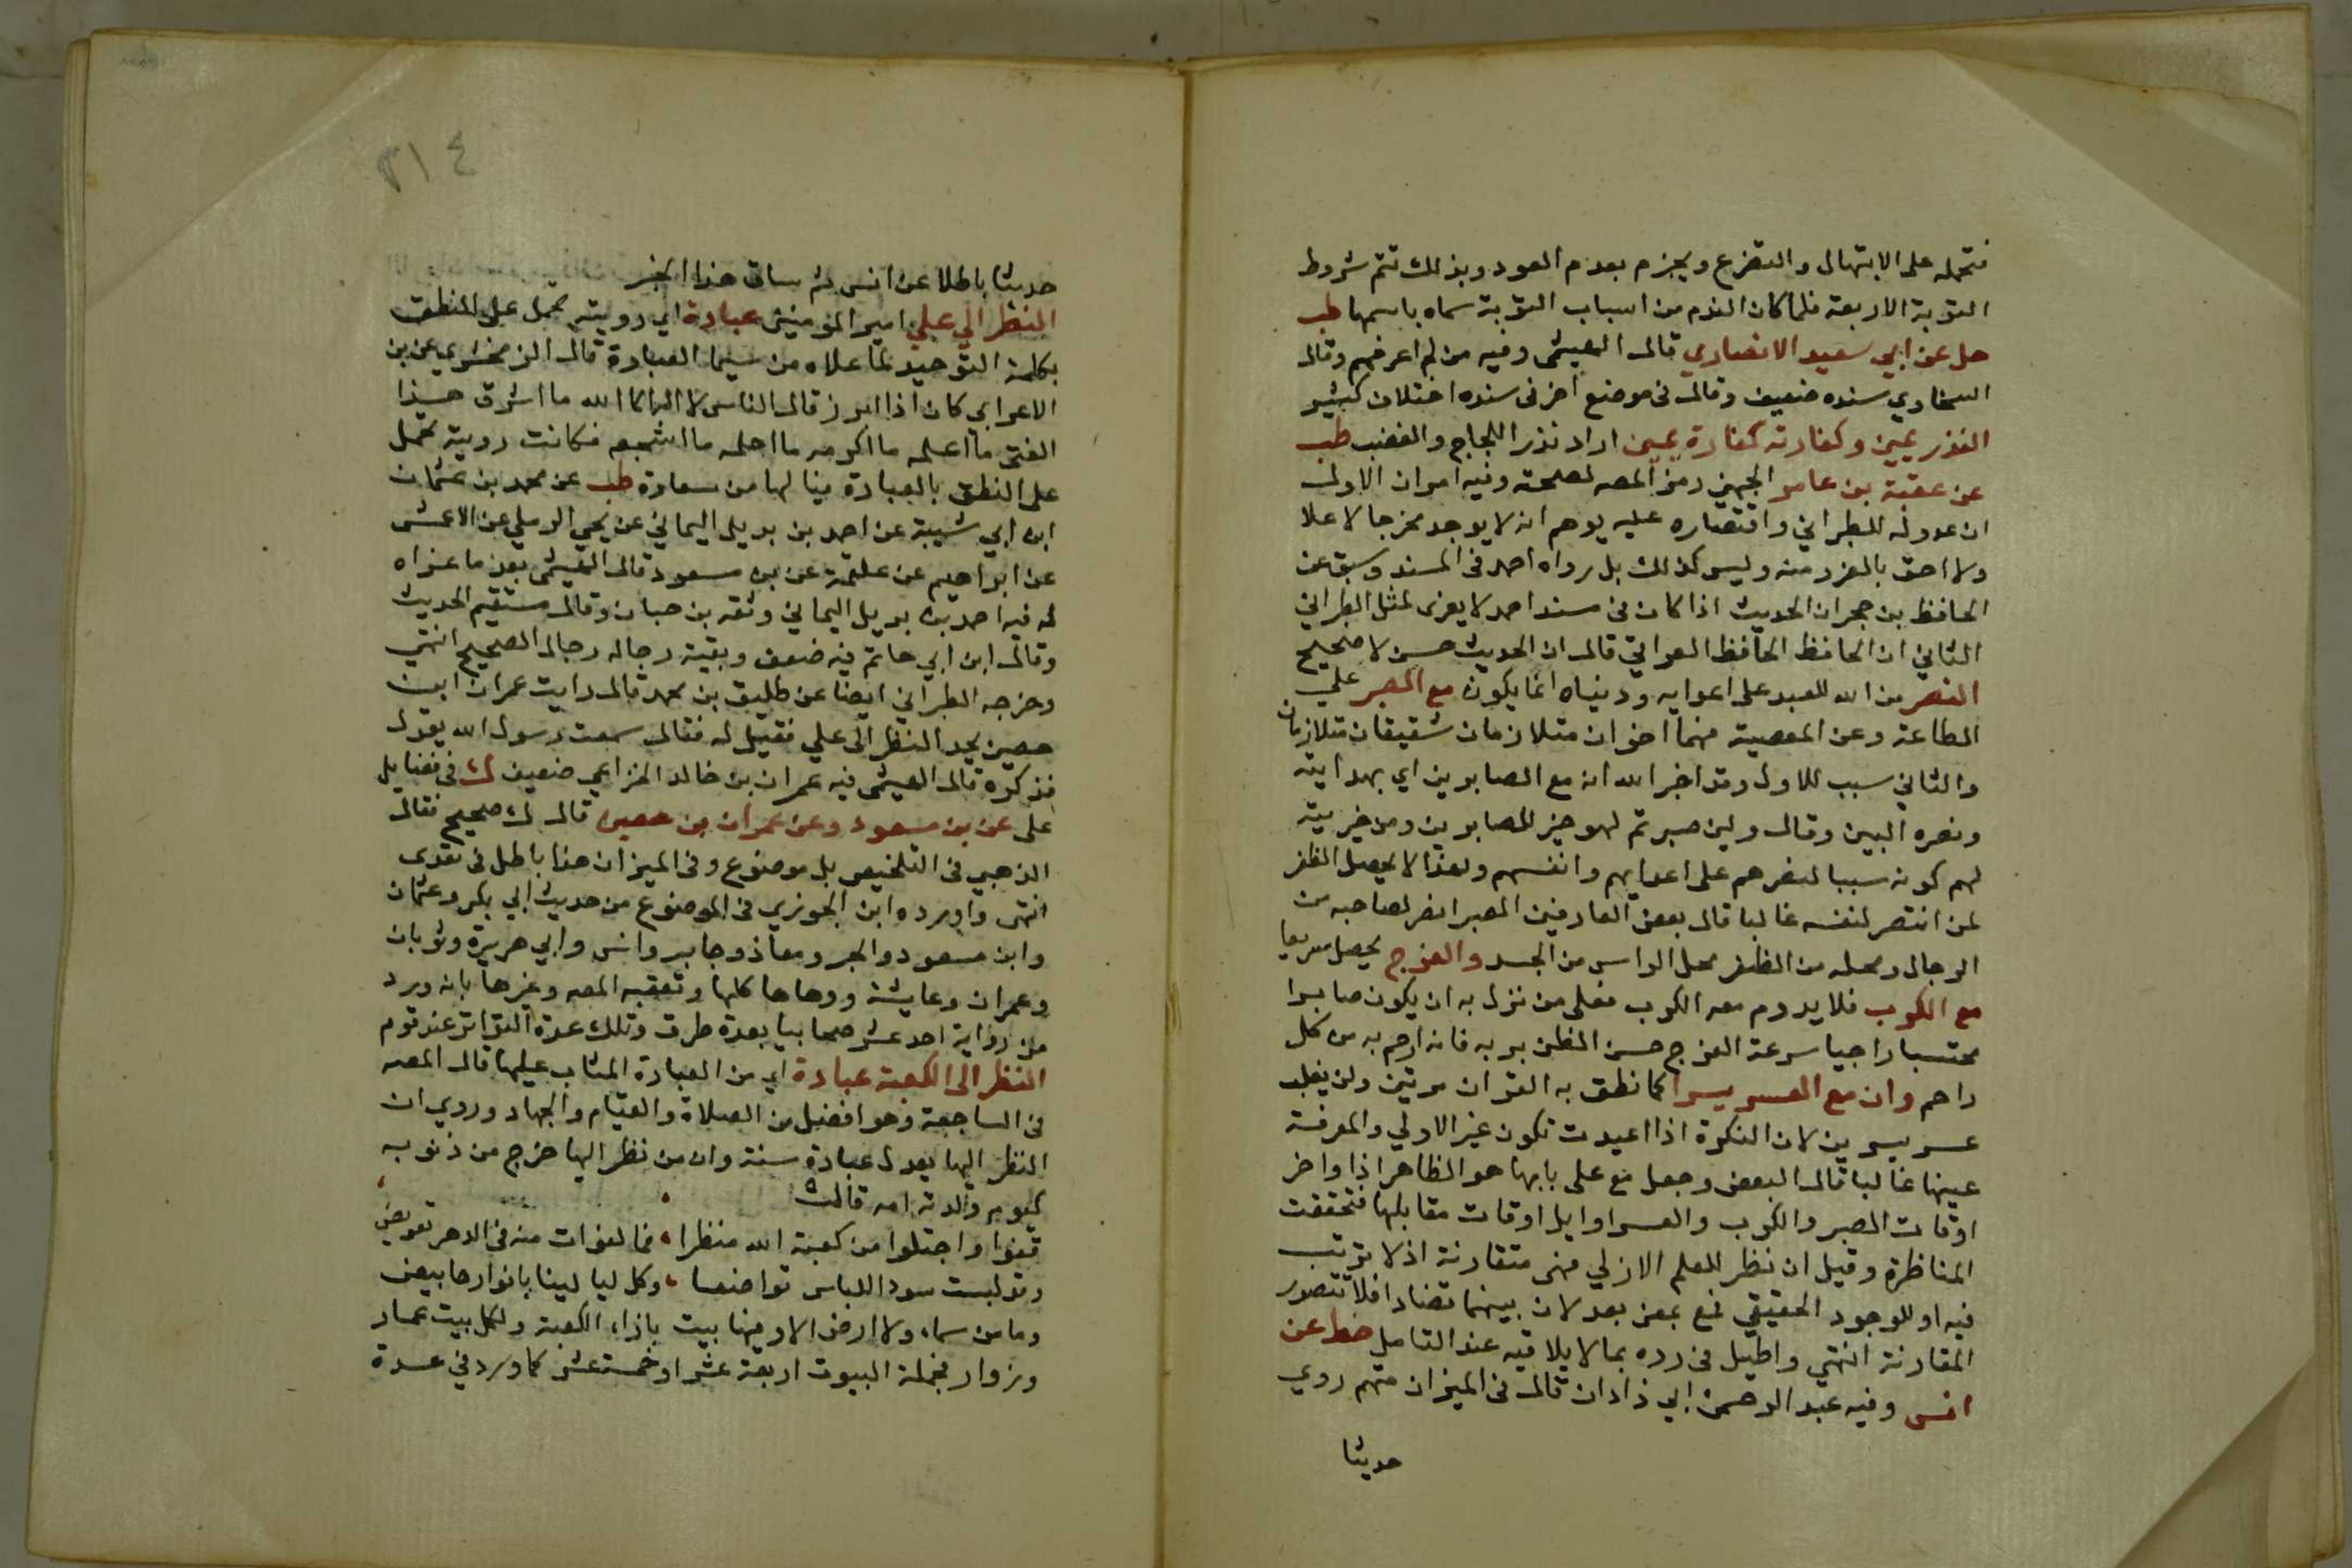 فتحمله على الابتهال والتضرع ويجزم بعدم العود وبذلك تتم شروط
التوبة الاربعة فلما كان الندم من اسباب التوبة سماه باسمها طب
حل عن ابي سعيد الانصاري قال الهيثمى وفيه من لم اعرفهم وقال
السخاوي سنده ضعيف وقال فى موضع اخر فى سنده اختلاف كبير
النذر يمين وكفارته كفارة يمين اراد نذر اللجاج والغضب طب
عن عقبة بن عامر الجهني رمز المصه لصحته وفيه امران الاول
ان عدوله للطبراني واقتصاره عليه يوهم انه لا يوجد مخرجا لاعلا
ولا احق بالعزو منه وليس كذلك بل رواه احمد فى المسند وسبق عن
الحافظ بن حجر ان الحديث اذا كان فى مسند احمد لا يعزى لمثل الطبراني
الثاني ان الحافظ الحافظ العراقي قال ان الحديث حسن لا صحيح
النصر من الله للعبد على اعدايه ودنياه انما يكون مع الصبر علي
الطاعة وعن المعصية فهما اخوان متلازمان شقيقان متلازمان
والثاني سبب للاول وقد اخبر الله انه مع الصابرين اي بهدايته
ونصره المبين وقال ولين صبرتم لهو خير للصابرين ومن خيريته
لهم كونه سببا لنصرهم على اعدايهم وانفسهم ولهذا لا يحصل الظفر
لمن انتصر لنفسه غالبا قال بعض العارفين الصبر انصر لصاحبه من
الرجال ومحله من الظفر محل الراس من الجسد والفرج يحصل سريعا
مع الكرب فلا يدوم معه الكرب فعلى من نزل به ان يكون صابرا
محتسبا راجيا سرعة الفرج حسن الظن بربه فانه ارحم به من كل
راحم وان مع العسر يسرا كما نطق به القران مرتين ولن يغلب
عسر يسرين لان النكرة اذا اعيدت تكون غير الاولي والمعرفة
عينها غالبا قال البعض وجعل مع على بابها هو الظاهر اذ اواخر
اوقات الصبر والكرب والعسر اوايل اوقات مقابلها فتحققت
المناظرة وقيل ان نظر للعلم الازلي فهى متقارنة اذ لا ترتب
فيه او للوجود الحقيقي فمع بمعنى بعد لان بينهما تضاد افلا تتصور
المقارنة انتهي واطيل فى رده بما لا يلاقيه عند التامل خط عن
انس وفيه عبد الرحمن ابي زادان قال فى الميزان متهم روي
حديثا
٣١٤
حديثا باطلا عن انس ثم ساق هذا الخبر
النظر الي علي امير المومنين عبادة اي رويته تحمل على النطق
بكلمة التوحيد لما علاه من سيما العبادة قال الزمخشري عن بن
الاعرابي كان اذا ابرز قال الناس لا اله الا الله ما اشرق هذا
الفتى ما اعلمه ما اكرمه ما احلمه ما اشجعه فكانت رويته تحمل
على النطق بالعبادة فيا لها من سعادة طب عن محمد بن عثمان
ابن ابي شيبة عن احمد بن بديل اليماني عن يحي الرملي عن الاعمش
عن ابراهيم عن علقمة عن بن مسعود قال الهيثمى بعد ما عزاه
له فيه احمد بن بديل اليماني وثقه بن حبان وقال مستقيم الحديث
وقال ابن ابي حاتم فيه ضعف وبقية رجاله رجال الصحيح انتهي
وخرجه الطبراني ايضا عن طليق بن محمد قال رايت عمران ابن
حصين يحد النظر الى علي فقيل له فقال سمعت رسول الله يقول
فذكره قال الهيثمى فيه عمران بن خالد الخزاعي ضعيف ك فى فضايل
على عن بن مسعود وعن عمران بن حصين قال ك صحيح فقال
الذهبي فى التلخيص بل موضوع وفى الميزان هذا باطل فى نقدى
انتهى واورده ابن الجوزي فى الموضوع من حديث ابي بكر وعثمان
وابن مسعود والحبر ومعاذ وجابر وانس وابي هريرة وثوبان
وعمران وعايشة ووهاها كلها وتعقبه المصه وغيرها بانه ورد
من رواية احد عشر صحابيا بعدة طرق وتلك عدة التواتر عند قوم
النظر الى الكعبة عبادة اي من العبادة المثاب عليها قال المصه
فى الساجعة وهو افضل من الصلاة والقيام والجهاد وروي ان
النظر اليها يعدل عبادة سنة وان من نظر اليها خرج من ذنوبه
كيوم ولدته امه قالت
قفوا واجتلوا من كعبة الله منظرا ، فما لفوات منه فى الدهر تعويض
وقد لبست سود اللباس تواضعا ، وكل ليالينا بانوارها بيض
وما من سماء ولا ارض الا وفيها بيت بازاء الكعبة ولكل بيت عمار
وزوار فجملة البيوت اربعة عشر او خمسة عشر كما ورد في عدة